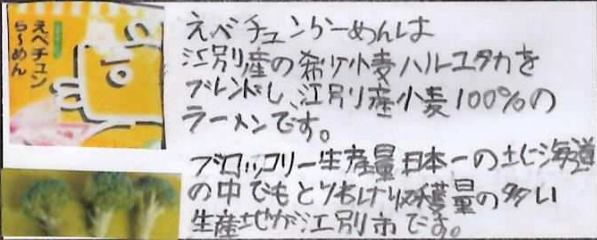 えべチュン
ら〜めん
えべチュンらーめんは
江別産の希少小麦ハルユタカを
ブレンドし、江別産小麦100%の
ラーメンです。
ブロッコリー生産量日本一の北海道
の中でもとりわけ収穫量の多い
生産地が江別市です。